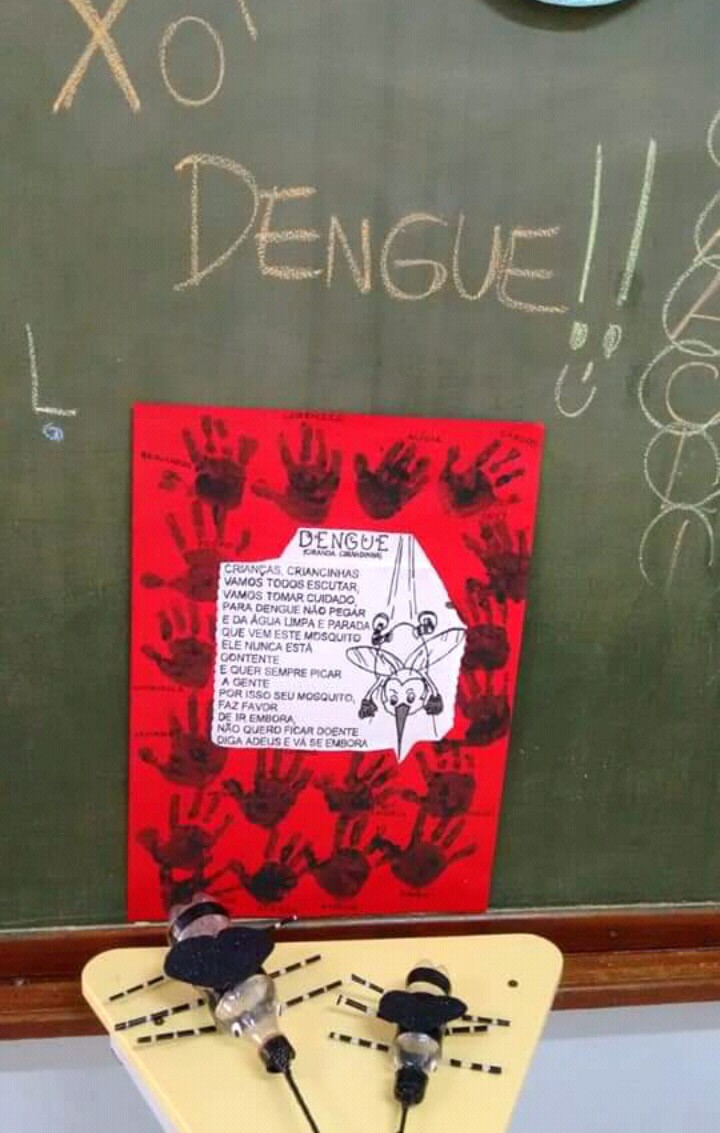 XÔ
DENGUE!!
L
DENGUE
(CIRANDA CIRANDINHA)
CRIANÇAS, CRIANCINHAS
VAMOS TODOS ESCUTAR,
VAMOS TOMAR CUIDADO,
PARA DENGUE NÃO PEGAR
E DA ÁGUA LIMPA E PARADA
QUE VEM ESTE MOSQUITO
ELE NUNCA ESTÁ
CONTENTE
E QUER SEMPRE PICAR
A GENTE
POR ISSO SEU MOSQUITO,
FAZ FAVOR
DE IR EMBORA,
NÃO QUERO FICAR DOENTE
DIGA ADEUS E VÁ SE EMBORA